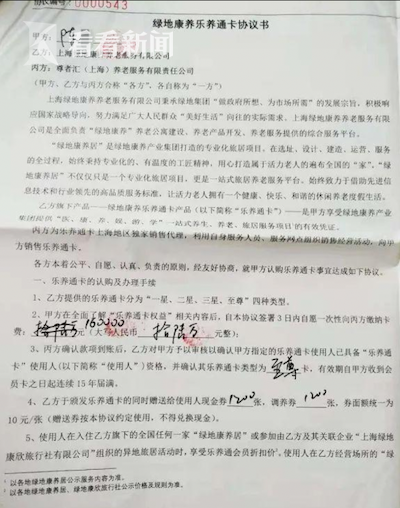 协议编号:0000543
看看新闻
绿地康养乐养通卡协议书
甲方:陈
乙方:上海
丙方:尊者汇(上海)养老服务有限责任公司
(甲方、乙方与丙方合称“各方”,各自合称为“一方”)
上海绿地康养养老服务有限公司秉承绿地集团“做政府所想、为市场所需”的发展宗旨,积极响
应国家战略导向,努力满足广大人民群众“美好生活”向往的实际需求、上海绿地康养养老服务有
限公司是全面负责“绿地康养”养老公寓建设、养老产品开发、养老服务提供的综合服务平台。
“绿地康养居”是绿地康养产业集团打造的专业化旅居项目,在选址、设计、建造、运营、服务
的全过程,始终秉持专业化的、有温度的工匠精神,用心打造属于活力老人的遍布全国的“家”。“绿
地康养居”不仅仅只是一个专业化旅居项目、更是一站式旅居养老服务平台、始终致力于借助先进信
息技术和行业领先的高品质服务标准,让活力老人拥有一个健康、快乐、和谐的休闲养老度假生活。
乙方旗下产品——绿地康养乐养通卡产品(以下简称“乐养通卡”)——是甲方享受绿地康养产业
集团提供“医、康、养、娱、游、学”一站式养生、养老、旅居服务项目的有效凭证。
丙方为乐养通卡上海地区独家销售代理,利用自身服务人员、服务网点组织销售经营活动,向甲
方销售乐养通卡。
各方本着公平、自愿、认真、负责的原则,经友好协商,就甲方认购乐养通卡事宜达成如下协议。
一、乐养通卡的认购及办理手续
1、乙方提供的乐养通卡分为“一星、二星、三星、至尊”四种类型。
2、甲方在全面了解“乐养通卡权益”相关内容后,自本协议签署3日内自愿一次性向丙方缴纳卡
费:160000元(大写人民币 拾陆万 元整);
3、丙方确认款项到账后,乙方对甲方予以审核以确认甲方指定的乐养通卡使用人已具备“乐养通
卡”使用人(以下简称“使用人”)资格,并确认其乐养通卡类型为至尊卡、有效期自甲方收到会
员卡之日起连续15年届满。
4、乙方于颁发乐养通卡的同时赠送给使用人现金券1200张,调养券1200张,券面额统一为
10元/张(赠送券按本协议约定使用,不得兑换现金)。
5、使用人在入住乙方旗下的全国任何一家“绿地康养居”或参加由乙方及其关联企业“上海绿地
康欣旅行社有限公司”组织的异地旅居活动时,享受乐养通会员折扣价²、使用人在乙方经营场所的“绿
¹ 以各地绿地康养居公示服务内容为准。
² 以各地绿地康养居、绿地康欣旅行社公示价格及规则为准。